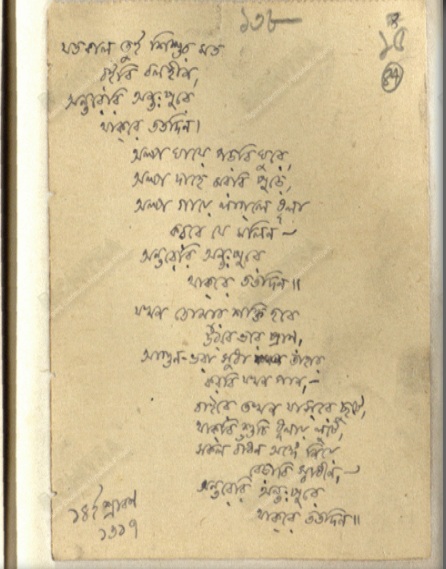 ১৩৮
১৫
যতকাল তুই শিশুর মত
রইবি বলহীন,
অন্তরেরি অন্তঃপুরে
থাকরে ততদিন।
অল্প ঘায়ে পড়বি ঘুরে,
অল্প দাহে মরবি পুড়ে,
অল্প গায়ে লাগলে ধূলা
করবে যে মলিন—
অন্তরেরি অন্তঃপুরে
থাকরে ততদিন॥
যখন তোমার শক্তি হবে
উঠবে ভরে প্রাণ,
আগুন-ভরা সুধা তাঁহার
করবি যখন পান,—
বাইরে তখন যাসরে ছুটে,
থাকবি শুচি ধূলায় লুটে,
সকল বাঁধন অঙ্গে নিয়ে
বেড়াবি স্বাধীন,—
অন্তরেরি অন্তঃপুরে
থাকরে ততদিন॥
১৪ই শ্রাবণ
১৩১৭